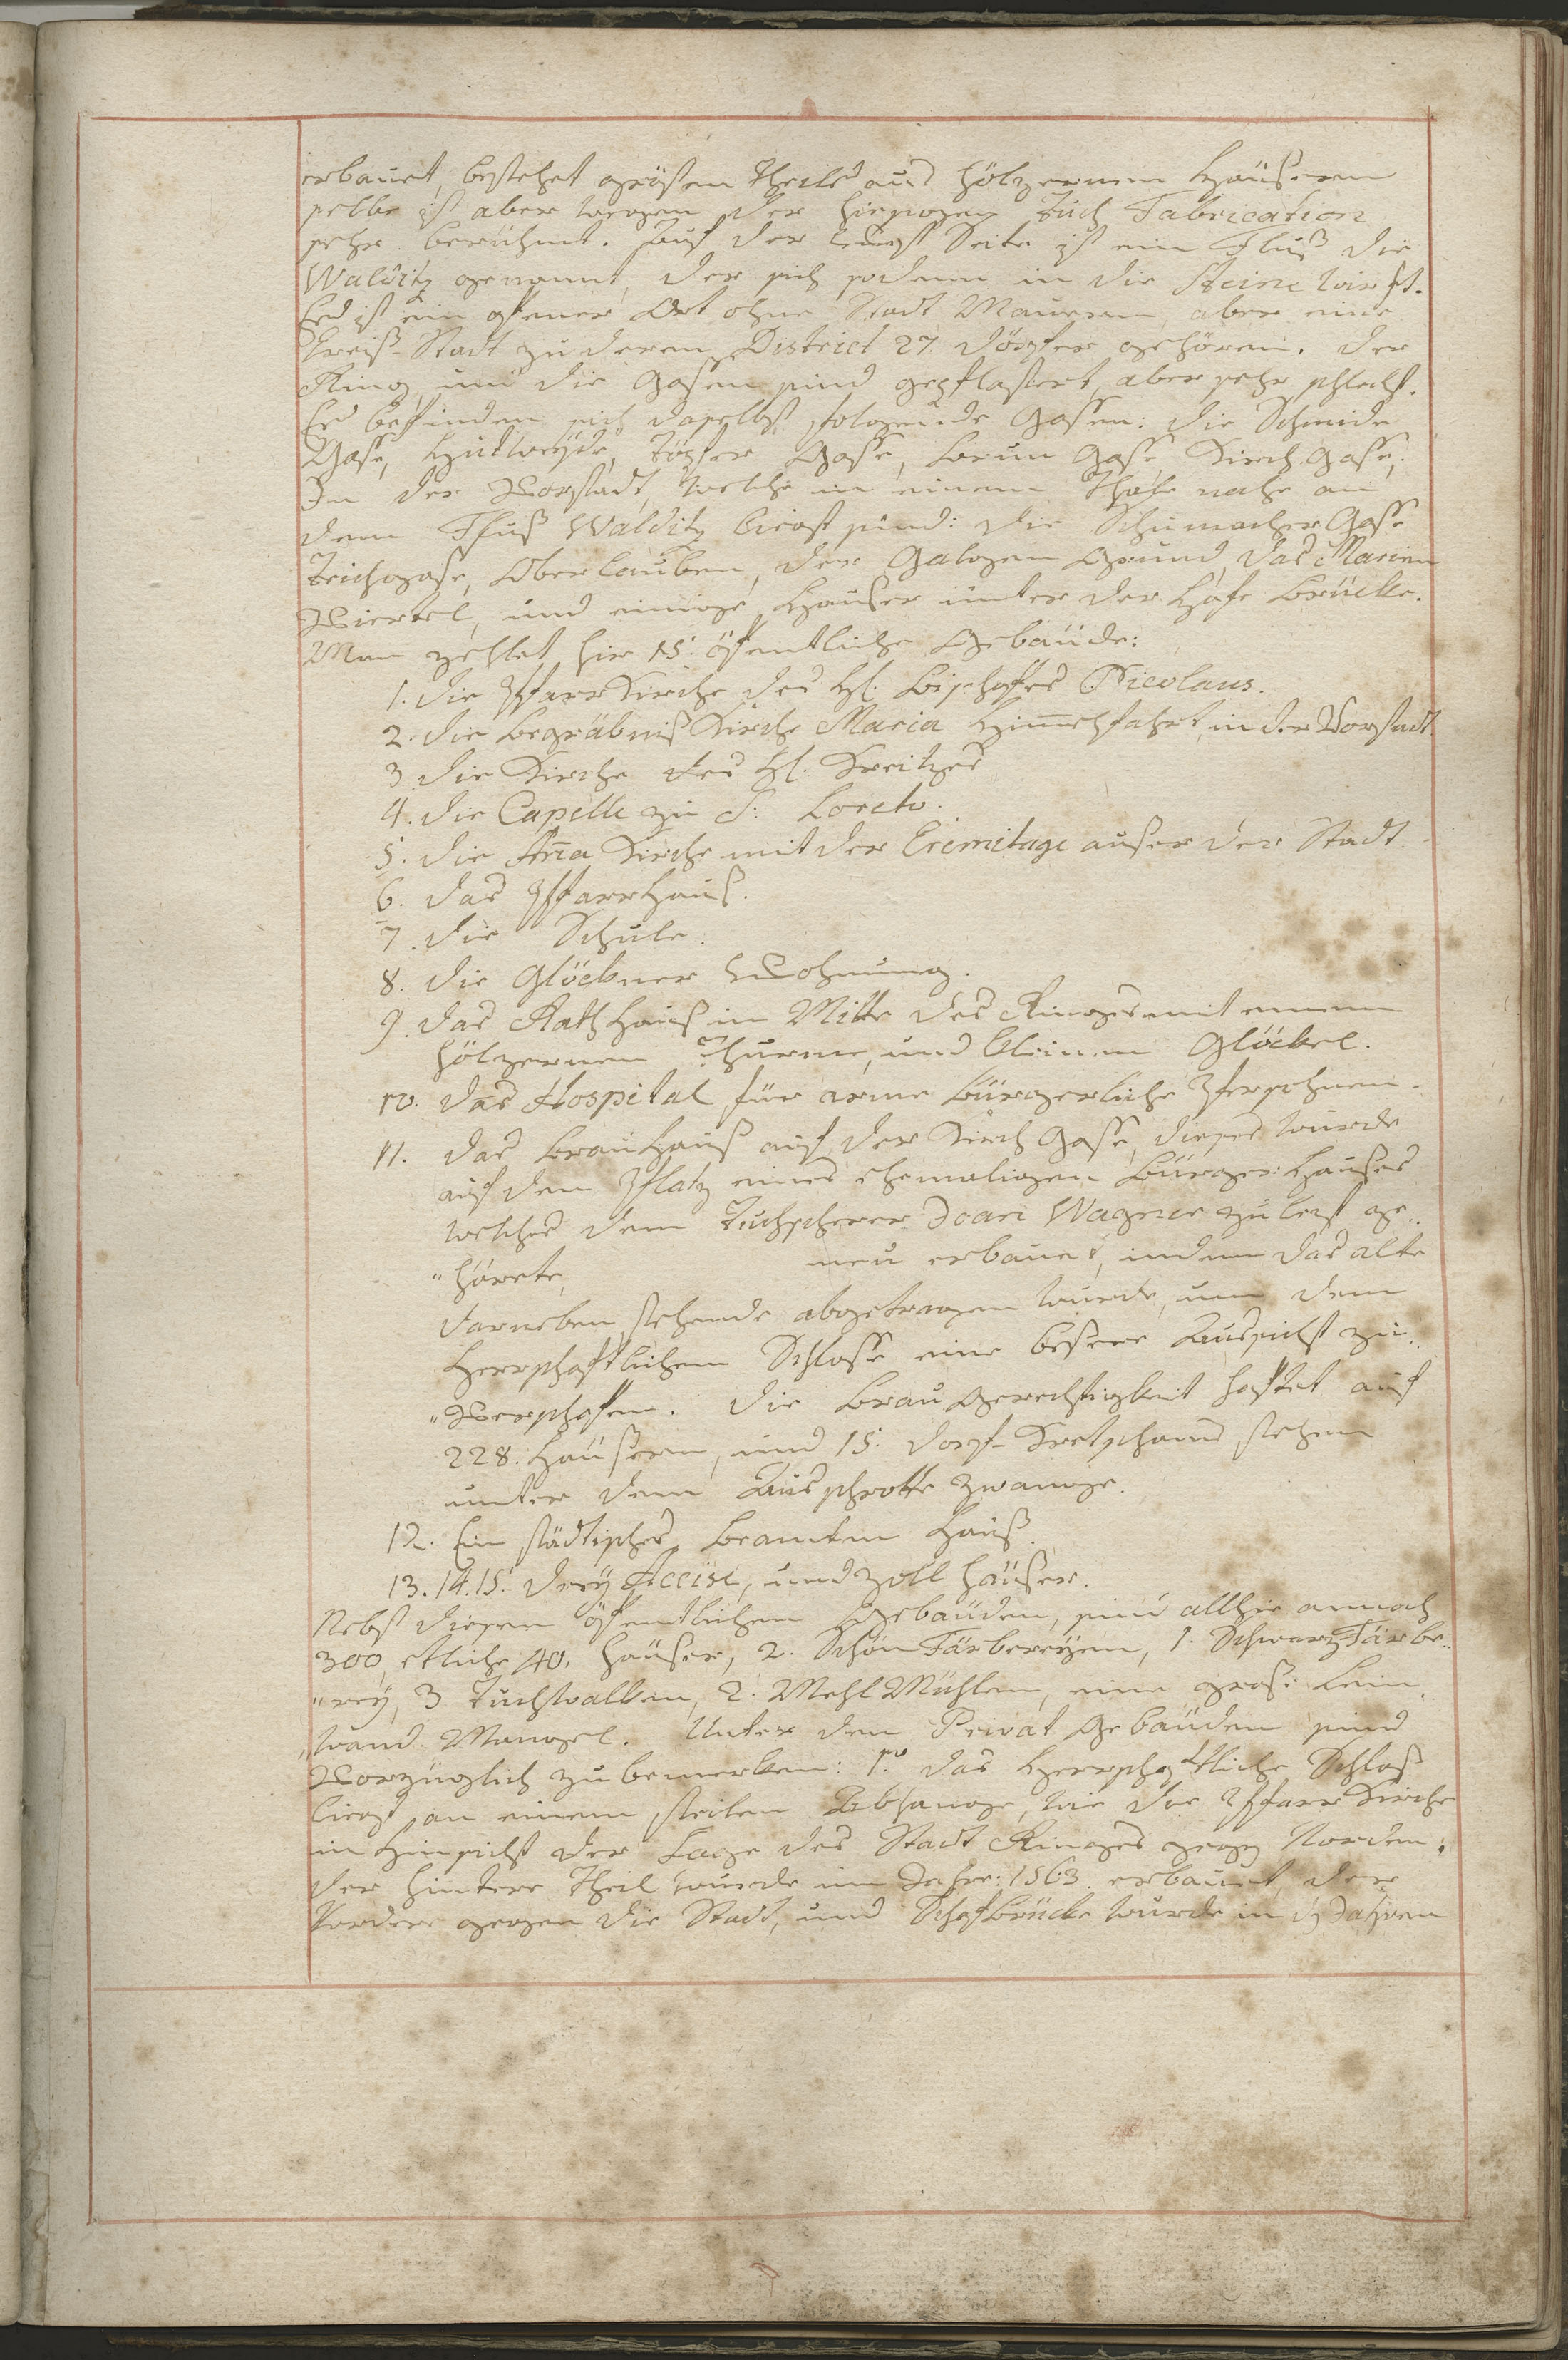 erbauet, bestehet grösten Theils aus hölzernen Häusern
selbe ist aber wegen der hiesigen Tuch Fabrication
sehr berühmt. Auf der Seite ist ein Fluß die
Walditz genannt, der sich sodenn in die Steine wirft.
Es ist ein offener Ort ohne Stadt Mauern, aber eine
Kreiß-Stadt zu deren District 27. Dörfer gehören. Der
Ring und die Gassen sind gepflastert, aber sehr schlecht.
Es befinden sich daselbst folgende Gassen: die Schmide
Gasse, Hutweyde, Töpfer Gasse, Brun Gasse, Kirch Gasse,
In der Vorstadt, welche in einem Thale nahe an
dem Fluß Walditz liegt sind: die Schumacher Gasse
Teichgasse, Oberlauben, der Galgen Grund, das Marien
Viertel, und einige Häuser unter der Brücke.
Man zehlet hier 15. öffentliche Gebäude:
1. die Pfarr Kirche des Hl. Bischoffes Nicolaus.
2. die Begräbniß Kirche Maria Himelfahrt, in der Vorstadt
3 die Kirche des Hl. Kreitzes
4. die Capelle zu S. Loreto.
5. die Aña Kirche mit der Eremitage ausser der Stadt.
6. das Pfarrhauß.
7. die Schule.
8. die Glöckner Wohnung.
9. das Rath Hauß in Mitte des Ringes mit einem
hölzernen Thurme, und kleinen Glöckel.
10. das Hospital für arme Bürgerliche Persohnen.
11. das Brau Hauß auf der Kirch Gasse, dieses wurde
auf dem Platz eines ehemaligen Bürger: Hauses
welches dem Tuchscherer Joan Wagner zu letzt ge„
„hörete, neu erbauet, indem das alte
darneben stehende abgetragen wurde, um dem
Herrschaftlichen Schlosse eine bessere Aussicht zu„
„Verschaffen. Die Brau Gerechtigkeit haftet auf
228. Häusern, und 15. Dorf-Kretschams stehen
unter dem Ausschrotte zwange.
12. Ein städtisches Beamten Hauß.
13. 14. 15. drey Accise, und Zoll häuser.
Nebst diesen öffentlichen Gebäuden, sind allhie annoch
300, etliche 40. häuser, 2. Schön Färbereyen, 1. Schwarz Färbe„
„rey, 3 Tuchwalken, 2. Mehl Mühlen, eine grosse Lein„
„wand Mangel. Unter den Privat Gebäuden sind
Vorzüglich zu bemerken: 1.mo das Herrschaftliche Schloß
liegt an einem steilen Abhange, wie die Pfarr Kirche
in Hinsicht der Lage des Stadt Ringes gegen Norden.
der hintere Theil wurde im Jahre: 1563. erbauet, der
Vordere gegen die Stadt, und Brücke wurde in Jahren